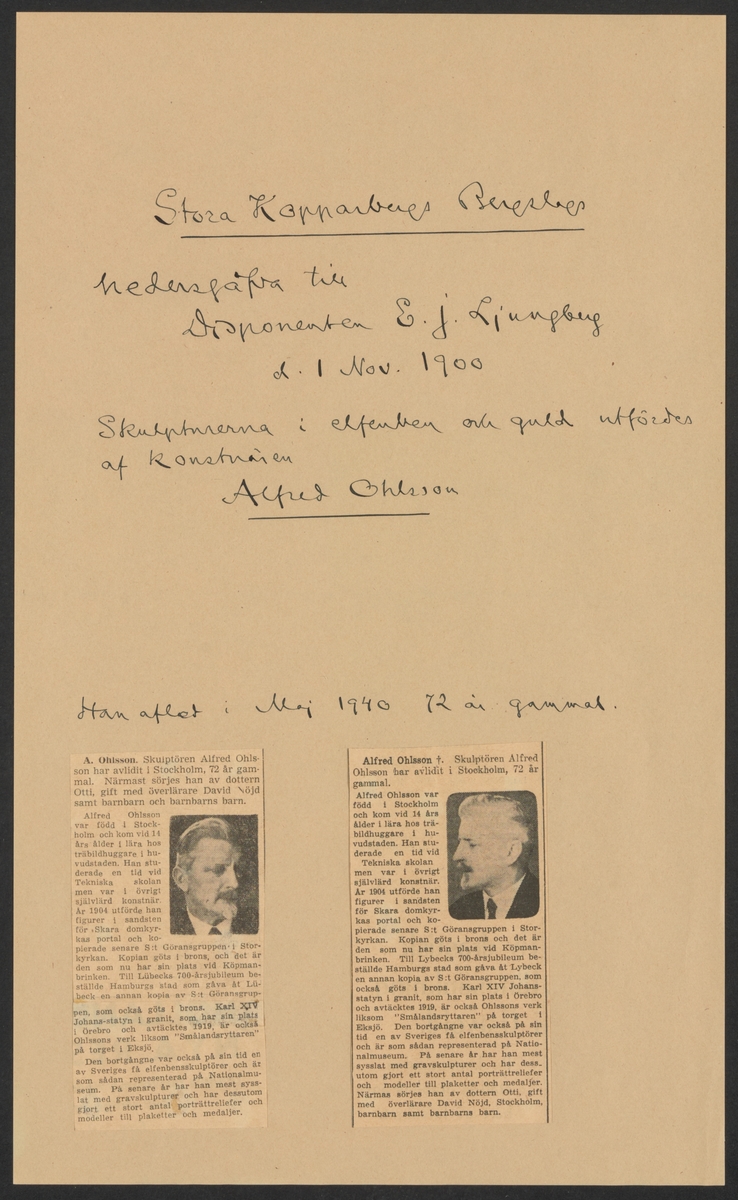 Stora Kopparbergs Bergslags
hedersgåfva till
Disponenten E. J. Ljungberg
d. 1 Nov. 1900
Skulpturerna i elfenben och guld utfördes
af konstnären
Alfred Ohlsson
Han afled i Maj 1940 72 år gammal.
A. Ohlsson. Skulptören Alfred Ohls-
son har avlidit i Stockholm, 72 år gam-
mal. Närmast sörjes han av dottern
Otti, gift med överlärare David Nöjd
samt barnbarn och barnbarns barn.
Alfred Ohlsson
var född i Stock-
holm och kom vid 14
års ålder i lära hos
träbildhuggare i hu-
vudstaden. Han stu-
derade en tid vid
Tekniska skolan
men var i övrigt
självlärd konstnär.
År 1904 utförde han
figurer i sandsten
för Skara domkyr-
kas portal och ko-
pierade senare S:t Göransgruppen i Stor-
kyrkan. Kopian göts i brons, och det är
den som nu har sin plats vid Köpman-
brinken. Till Lübecks 700-årsjubileum be-
ställde Hamburgs stad som gåva åt Lü-
beck en annan kopia av S:t Göransgrup-
pen, som också göts i brons. Karl XIV
Johans-statyn i granit, som har sin plats
i Örebro och avtäcktes 1919, är också
Ohlssons verk liksom "Smålandsryttaren"
på torget i Eksjö.
Den bortgångne var också på sin tid en
av Sveriges få elfenbensskulptörer och är
som sådan representerad på Nationalmu-
seum. På senare år har han mest syss-
lat med gravskulpturer och har dessutom
gjort ett stort antal porträttreliefer och
modeller till plaketter och medaljer.
Alfred Ohlsson †. Skulptören Alfred
Ohlsson har avlidit i Stockholm, 72 år
gammal.
Alfred Ohlsson var
född i Stockholm
och kom vid 14 års
ålder i lära hos trä-
bildhuggare i hu-
vudstaden. Han stu-
derade en tid vid
Tekniska skolan
men var i övrigt
självlärd konstnär.
År 1904 utförde han
figurer i sandsten
för Skara domkyr-
kas portal och ko-
pierade senare S:t Göransgruppen i Stor-
kyrkan. Kopian göts i brons och det är
den som nu har sin plats vid Köpman-
brinken. Till Lybecks 700-årsjubileum be-
ställde Hamburgs stad som gåva åt Lybeck
en annan kopia av S:t Göransgruppen, som
också göts i brons. Karl XIV Johans-
statyn i granit, som har sin plats i Örebro
och avtäcktes 1919, är också Ohlssons verk
liksom "Smålandsryttaren" på torget i
Eksjö. Den bortgångne var också på sin
tid en av Sveriges få elfenbensskulptörer
och är som sådan representerad på Natio-
nalmuseum. På senare år har han mest
sysslat med gravskulpturer och har dess-
utom gjort ett stort antal porträttreliefer
och modeller till plaketter och medaljer.
Närmas sörjes han av dottern Otti, gift
med överlärare David Nöjd, Stockholm,
barnbarn samt barnbarns barn.